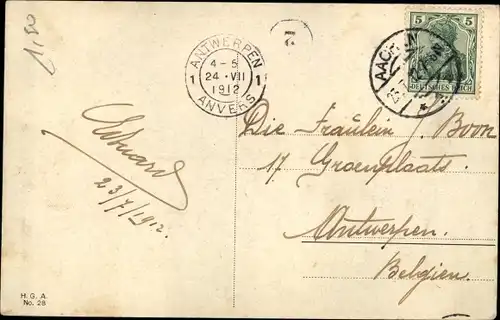 1,80
ANTWERPEN
4-5
24 · VII
1912
1 1
ANVERS
5 5
DEUTSCHES REICH
AACHEN
Die Fräulein J. Boon
17. Groenplaats.
Antwerpen.
Belgien.
Edouard
23/7/1912.
H. G. A.
No. 28